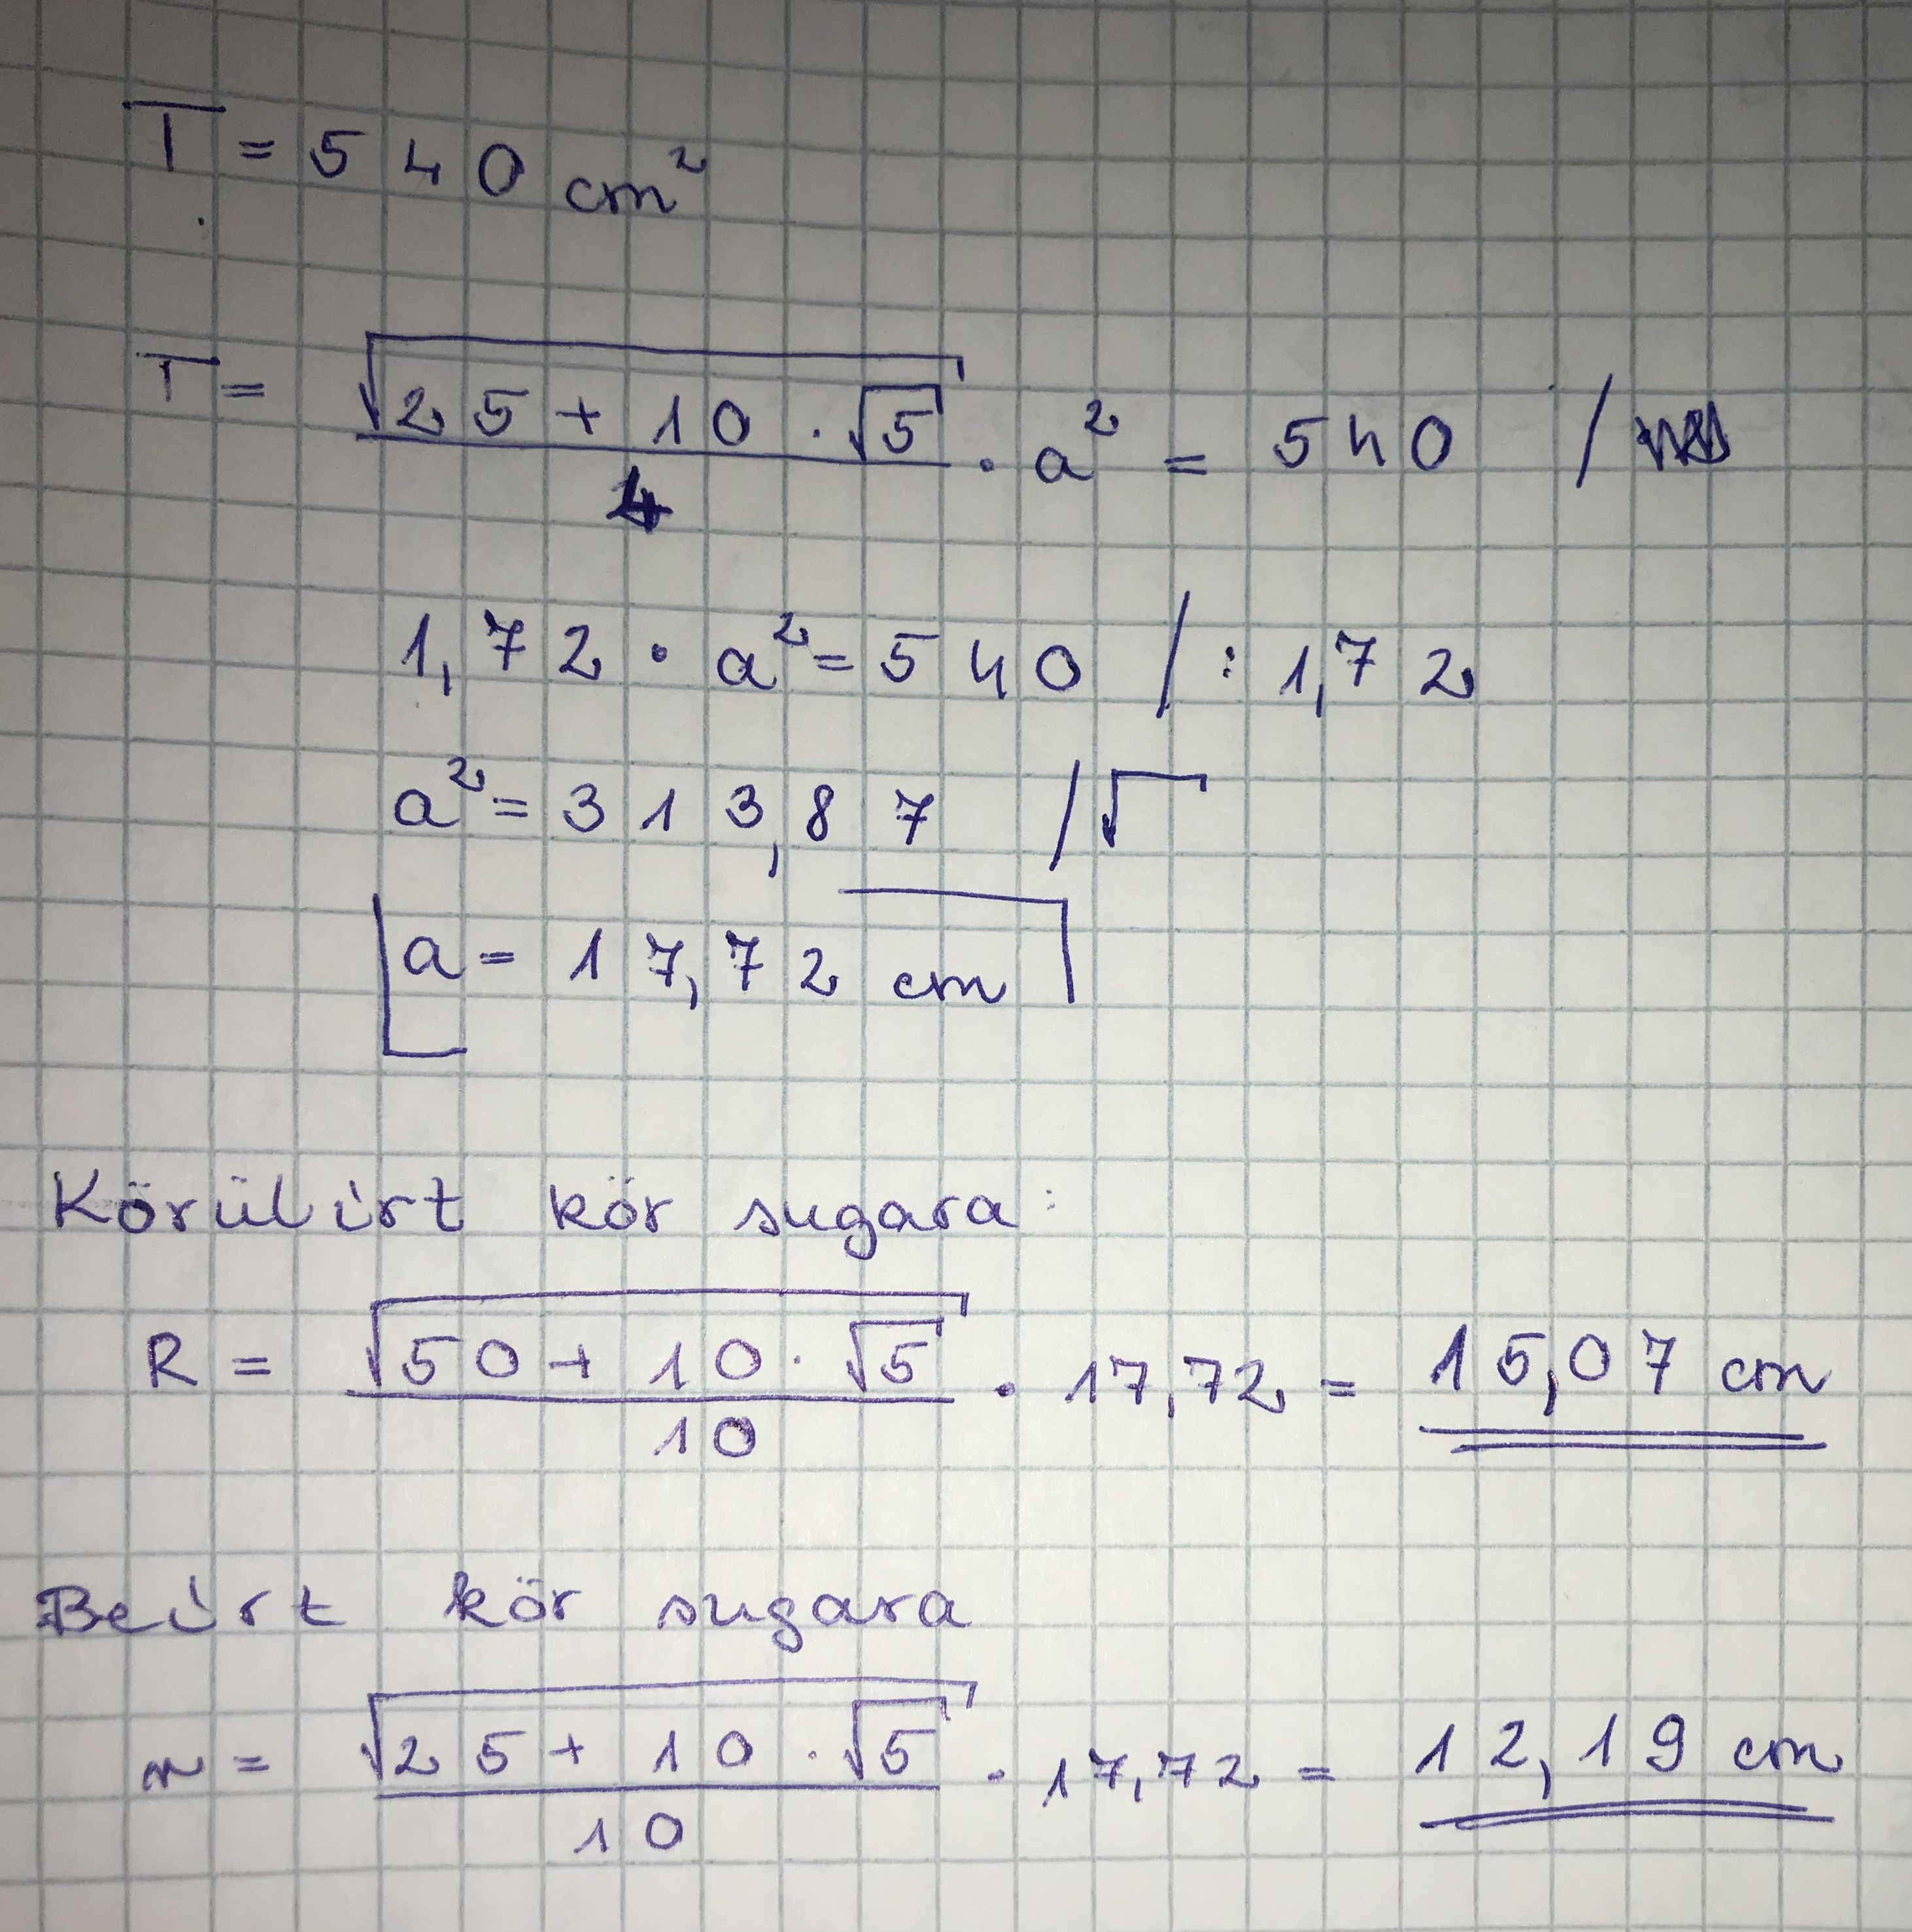 T = 540 cm²
T = √(25 + 10 · √5) / 4 · a² = 540 /
1,72 · a² = 540 / : 1,72
a² = 313,87 / √
a = 17,72 cm
Körülírt kör sugara:
R = √(50 + 10 · √5) / 10 · 17,72 = 15,07 cm
Beírt kör sugara
r = √(25 + 10 · √5) / 10 · 17,72 = 12,19 cm